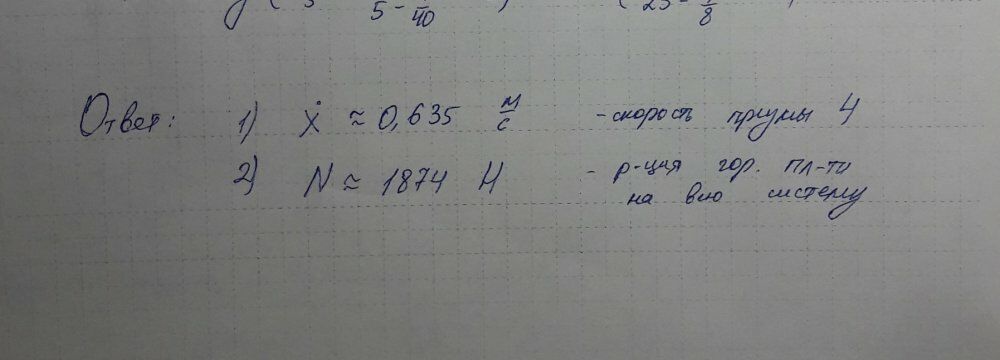 5 - 40 25 - 1/8
Ответ: 1) ẋ ≈ 0,635 м/с - скорость призмы 4
2) N ≈ 1874 Н - р-ция гор. пл-ти
на всю систему